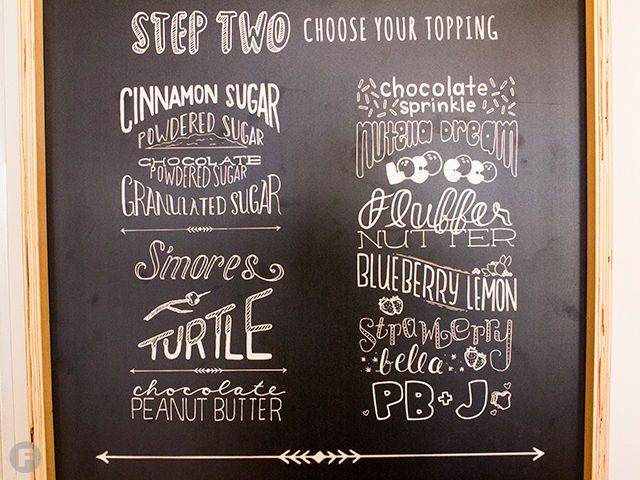 STEP TWO CHOOSE YOUR TOPPING
CINNAMON SUGAR
POWDERED SUGAR
CHOCOLATE
POWDERED SUGAR
GRANULATED SUGAR
S'mores
TURTLE
chocolate
PEANUT BUTTER
chocolate
sprinkle
nutella dream
LOCO COCO
fluffer
NUTTER
BLUEBERRY LEMON
strawberry
bella
PB+J
F